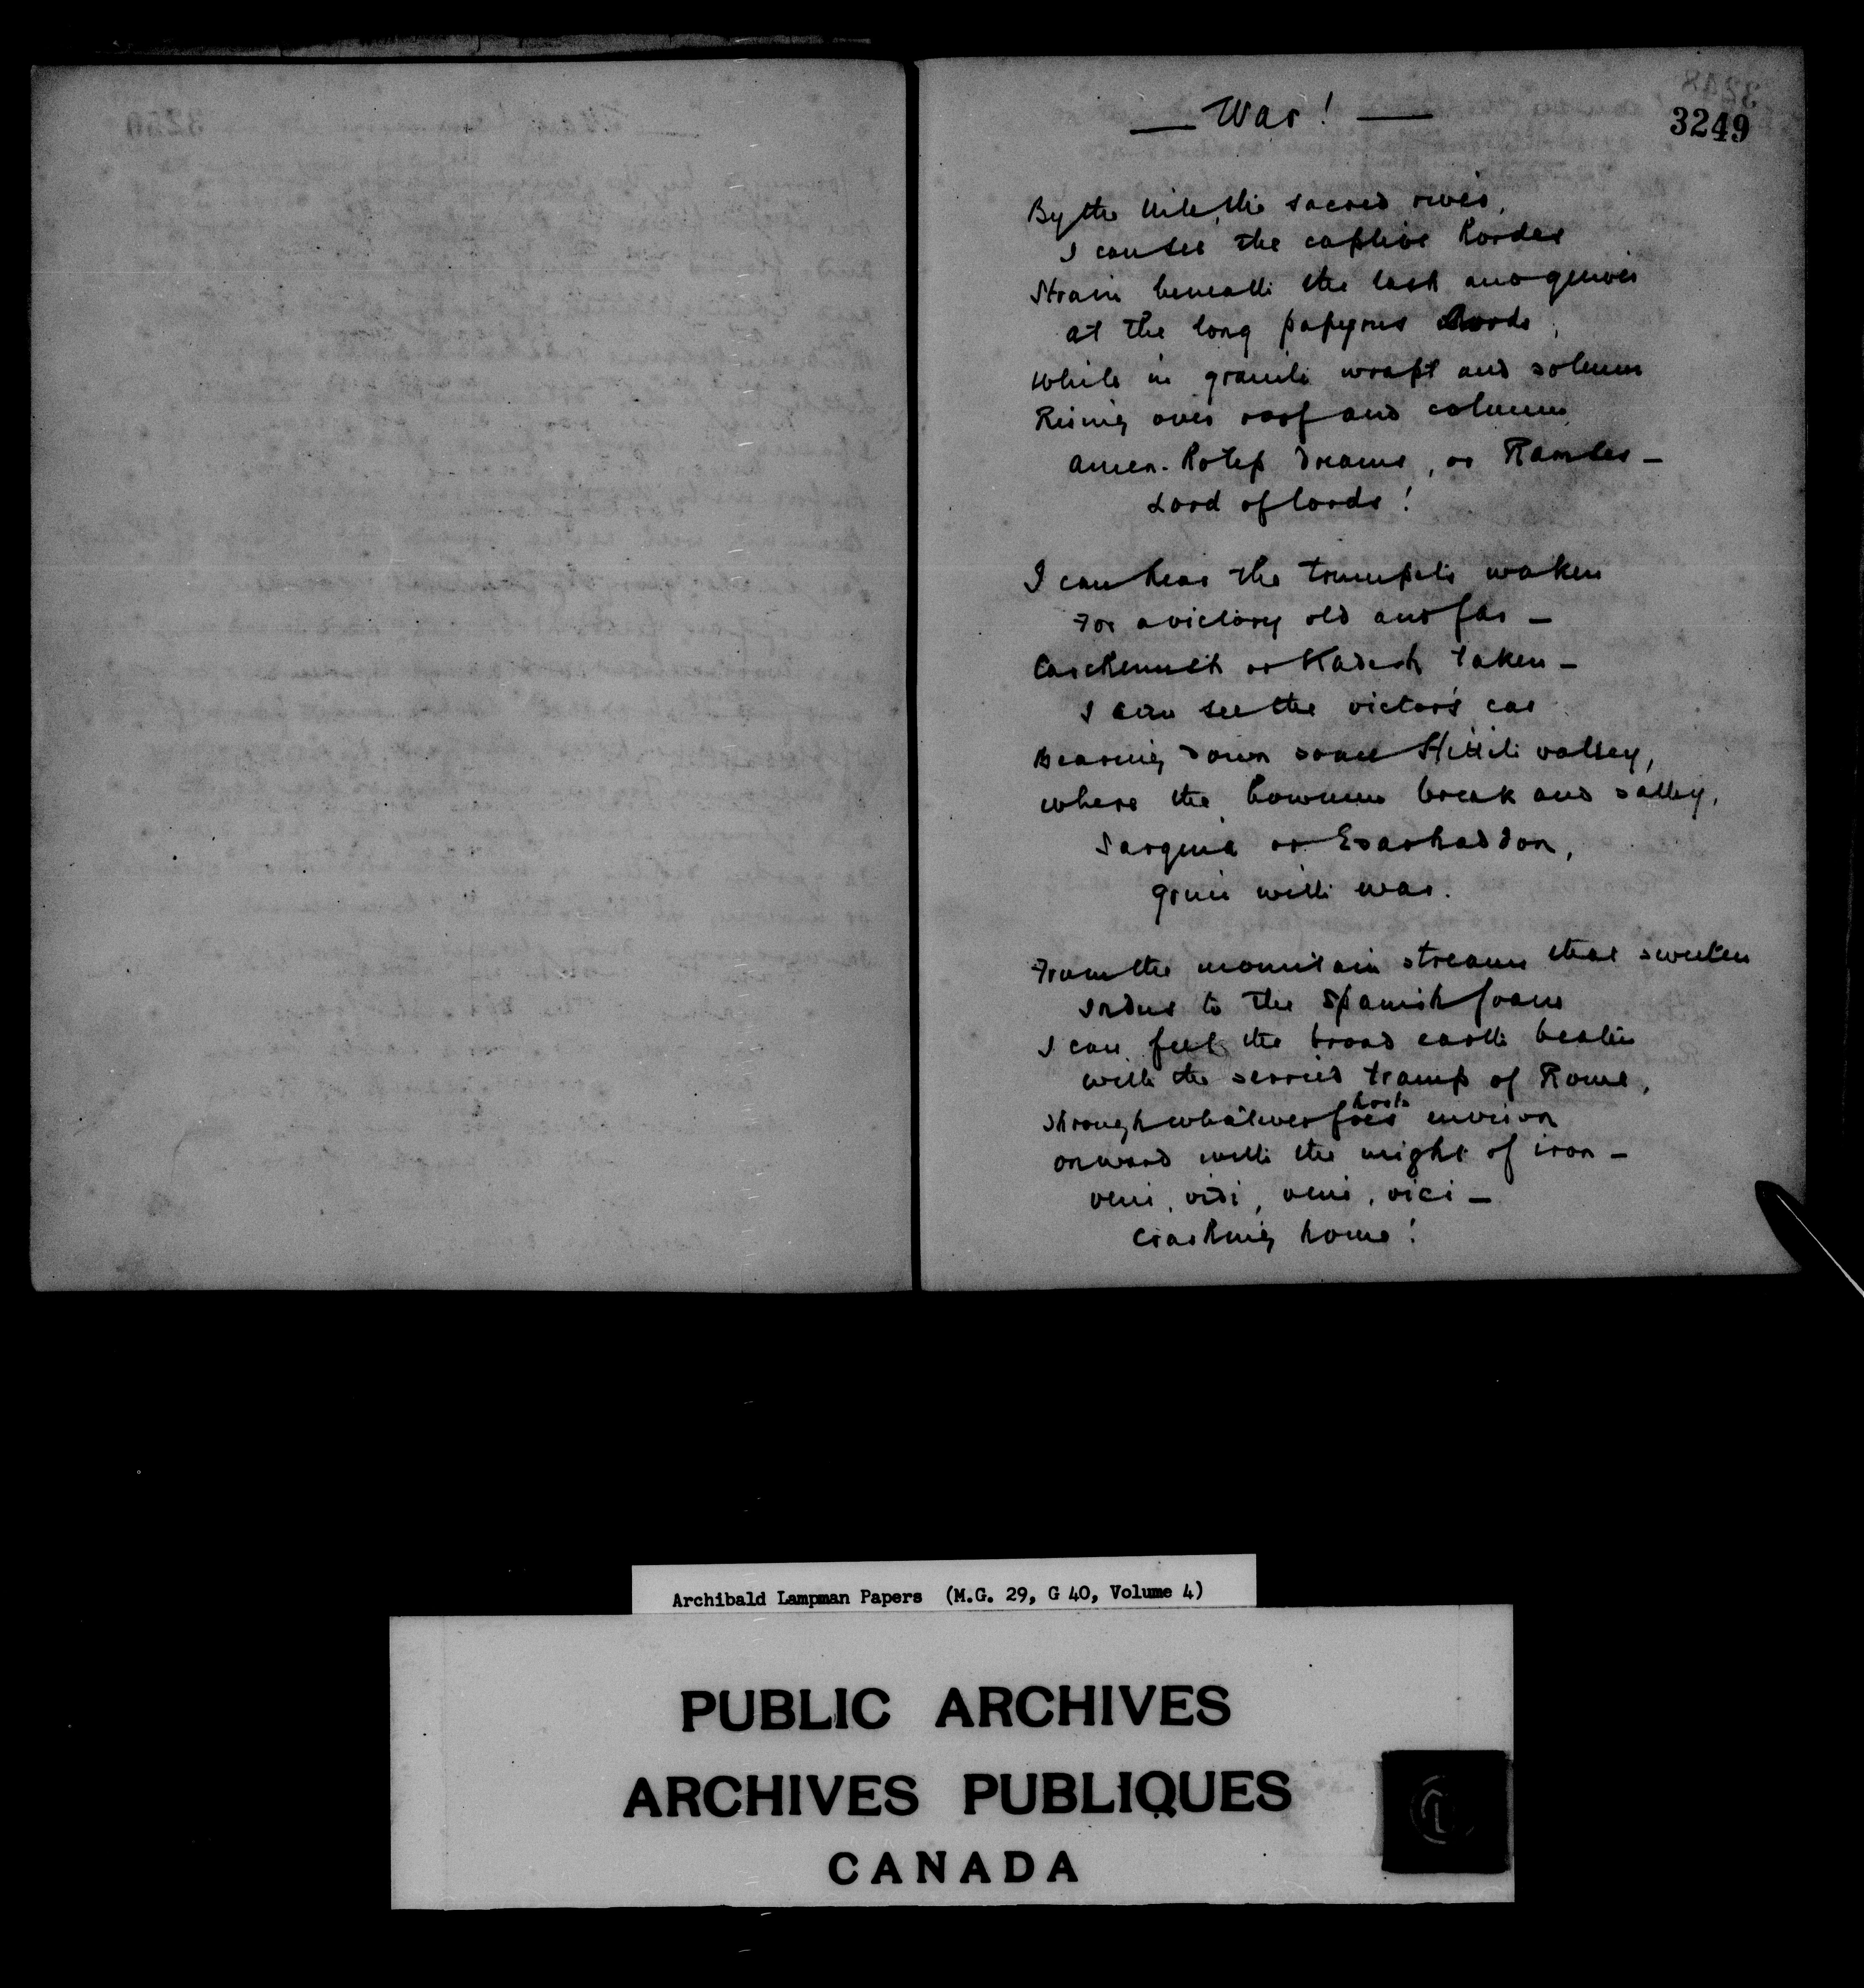 3249
— War! —
By the Nile, the sacred river,
I can see the captive hordes
Strain beneath the lash and quiver
At the long papyrus cords,
While in granite wrapt and solemn
Rising over roof and column
Amen-hotep dreams, or Ramses —
Lord of lords!
I can hear the trumpets waken
For a victory old and far —
Carchemish or Kadesh taken —
I can see the victor's car
Bearing down some Hittite valley,
Where the bowmen break and sally,
Sargina or Esarhaddon,
Grim with war.
From the mountain streams that sweeten
Indus to the Spanish foam
I can feel the broad earth beaten
With the serried tramp of Rome,
Through whatever foes hosts environ
Onward with the might of iron —
Veni, vidi, veni, vici —
Crashing home!
Archibald Lampman Papers (M.G. 29, G 40, Volume 4)
PUBLIC ARCHIVES
ARCHIVES PUBLIQUES
CANADA